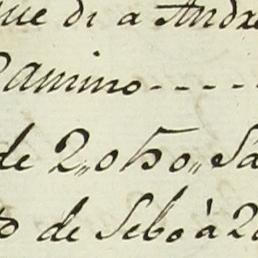 que di a Andre
Camino----
de 2,,050,, Sa
to de Sebo à 20